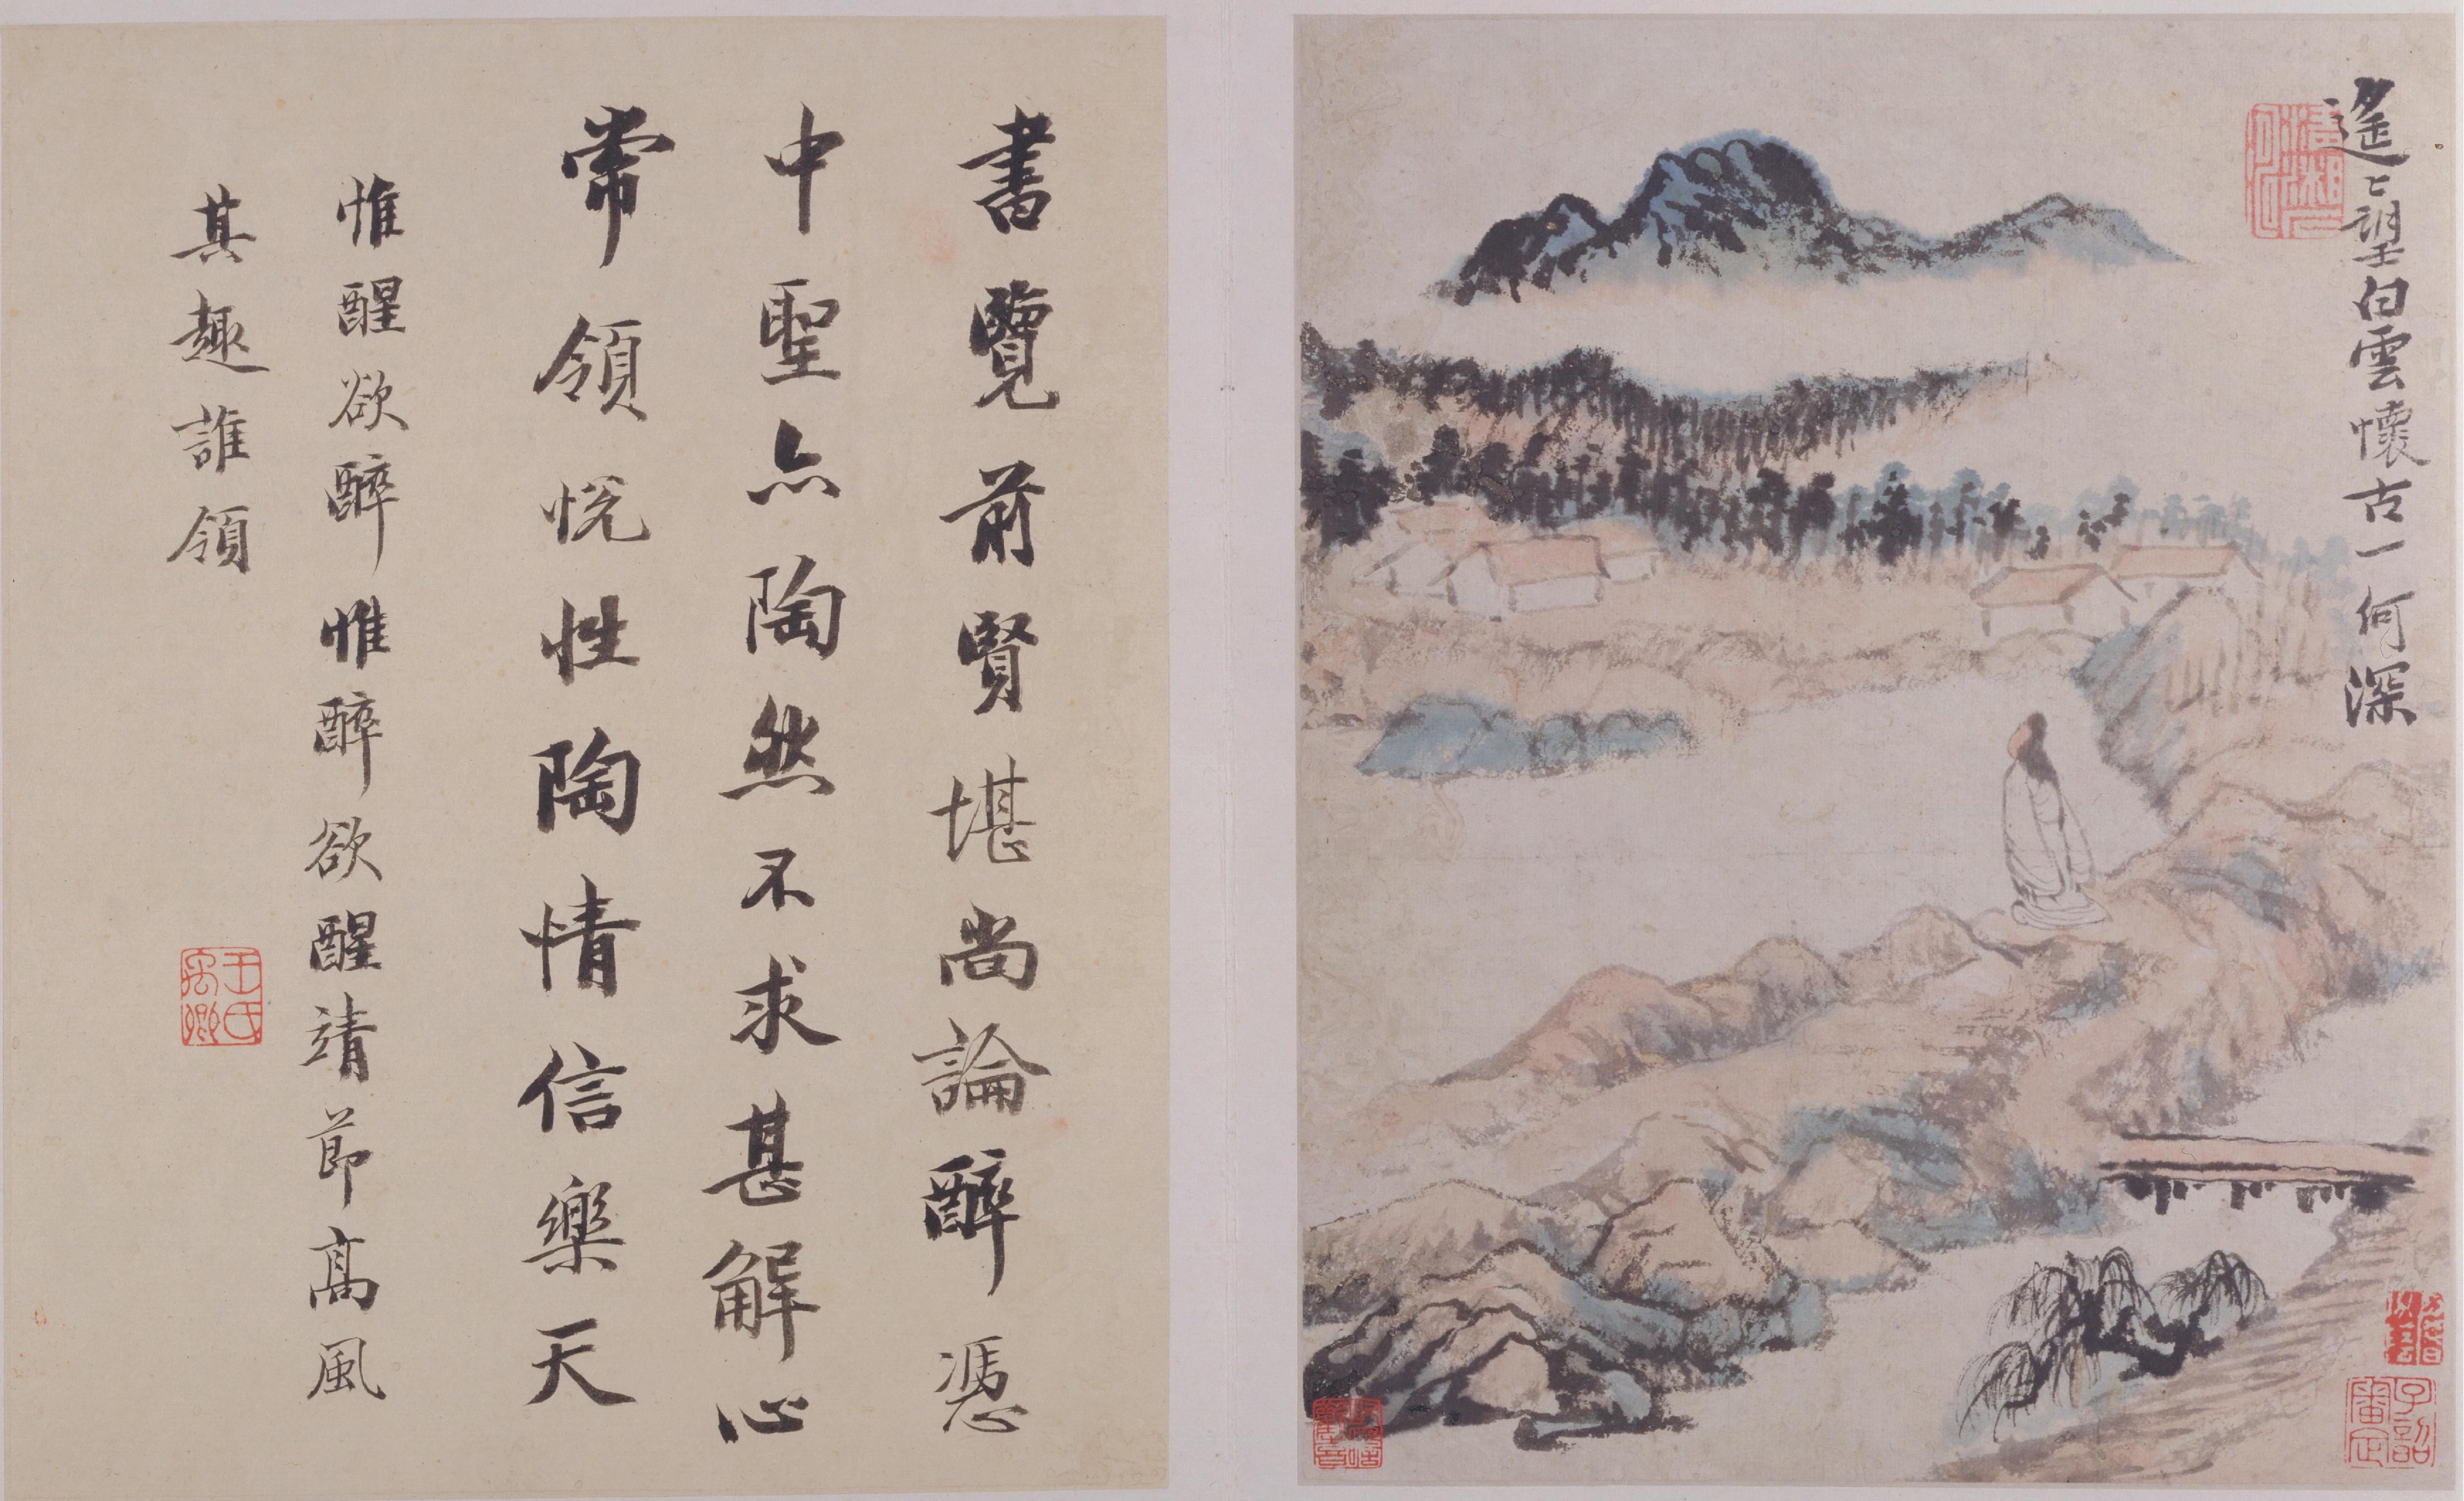 遙〻望白雲懷古一何深
書覽前賢堪尚論醉憑
中聖亦陶然不求甚解心
常領悅性陶情信樂天
惟醒欲醉惟醉欲醒靖節高風
其趣誰領
王氏
子韶審定